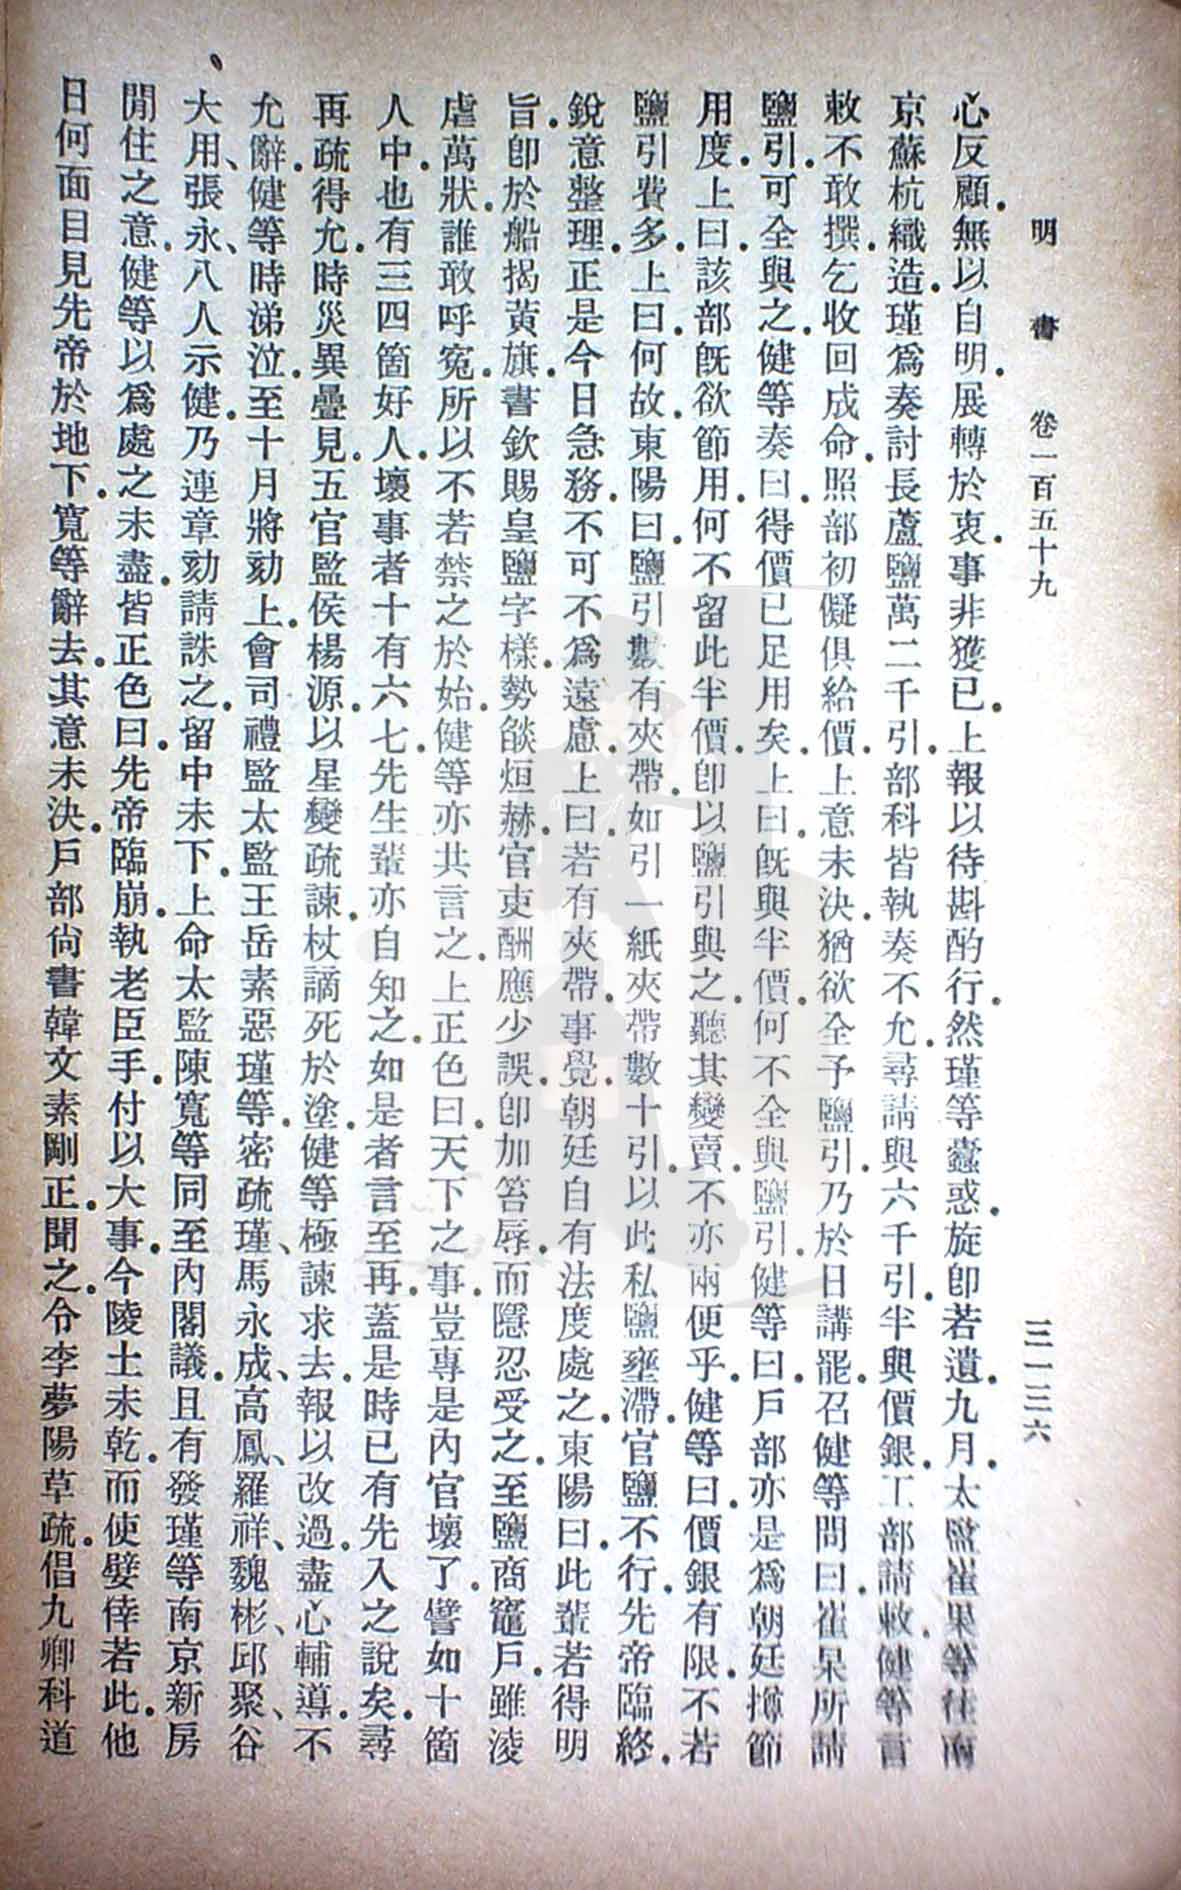 明書 卷一百五十九 三一三六
心反顧。無以自明。展轉於衷。事非獲已。上報以待斟酌行。然瑾等蠱惑。旋卽若遺。九月。太監崔杲等往南
京蘇杭織造。瑾爲奏討長蘆鹽萬二千引。部科皆執奏不允。尋請與六千引。半與價銀。工部請敕。健等言
敕不敢撰。乞收回成命。照部初儗俱給價。上意未決。猶欲全予鹽引。乃於日講罷。召健等問曰。崔杲所請
鹽引。可全與之。健等奏曰。得價已足用矣。上曰。旣與半價。何不全與鹽引。健等曰。戶部亦是爲朝廷撙節
用度。上曰。該部旣欲節用。何不留此半價。卽以鹽引與之。聽其變賣。不亦兩便乎。健等曰。價銀有限。不若
鹽引費多。上曰。何故。東陽曰。鹽引數有夾帶。如引一紙夾帶數十引。以此私鹽壅滯。官鹽不行。先帝臨終。
銳意整理。正是今日急務。不可不爲遠慮。上曰。若有夾帶。事覺。朝廷自有法度處之。東陽曰。此輩若得明
旨。卽於船揭黃旗。書欽賜皇鹽字樣。勢燄烜赫。官吏酬應少誤。卽加笞辱。而隱忍受之。至鹽商竈戶。雖淩
虐萬狀。誰敢呼寃。所以不若禁之於始。健等亦共言之。上正色曰。天下之事。豈專是內官壞了。譬如十箇
人中。也有三四箇好人。壞事者十有六七。先生輩亦自知之。如是者言至再。蓋是時已有先入之說矣。尋
再疏得允。時災異疊見。五官監侯楊源。以星變疏諫。杖謫死於塗。健等極諫求去。報以改過。盡心輔導。不
允辭。健等時涕泣。至十月將劾上。會司禮監太監王岳素惡瑾等。密疏瑾、馬永成、高鳳、羅祥、魏彬、邱聚、谷
大用、張永、八人示健。乃連章劾請誅之。留中未下。上命太監陳寬等同至內閣議。且有發瑾等南京新房
閒住之意。健等以爲處之未盡。皆正色曰。先帝臨崩。執老臣手。付以大事。今陵土未乾。而使嬖倖若此。他
日何面目見先帝於地下。寬等辭去。其意未決。戶部尙書韓文素剛正。聞之。令李夢陽草疏。倡九卿科道